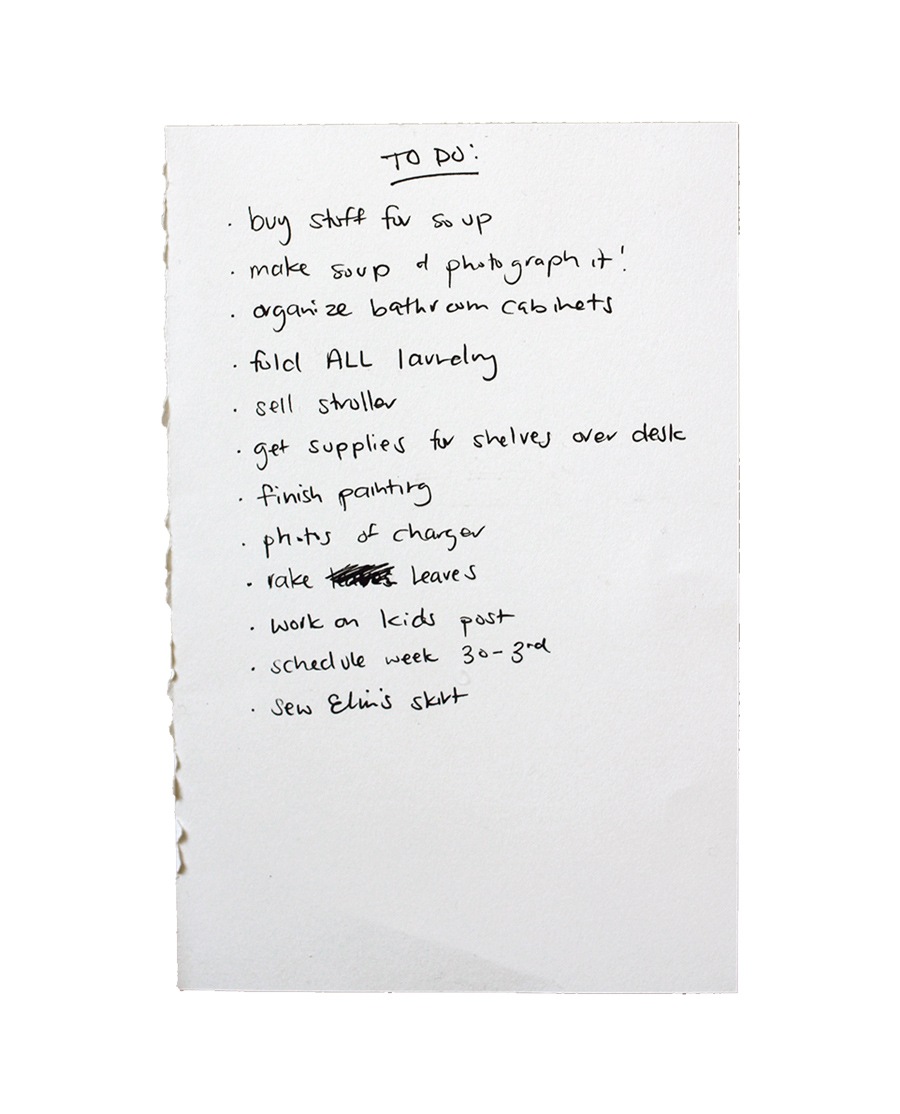 TO DO:
· buy stuff for soup
· make soup & photograph it!
· organize bathroom cabinets
· fold ALL laundry
· sell stroller
· get supplies for shelves over desk
· finish painting
· photos of charger
· rake leaves
· work on kids post
· schedule week 30-3rd
· sew Elin's skirt